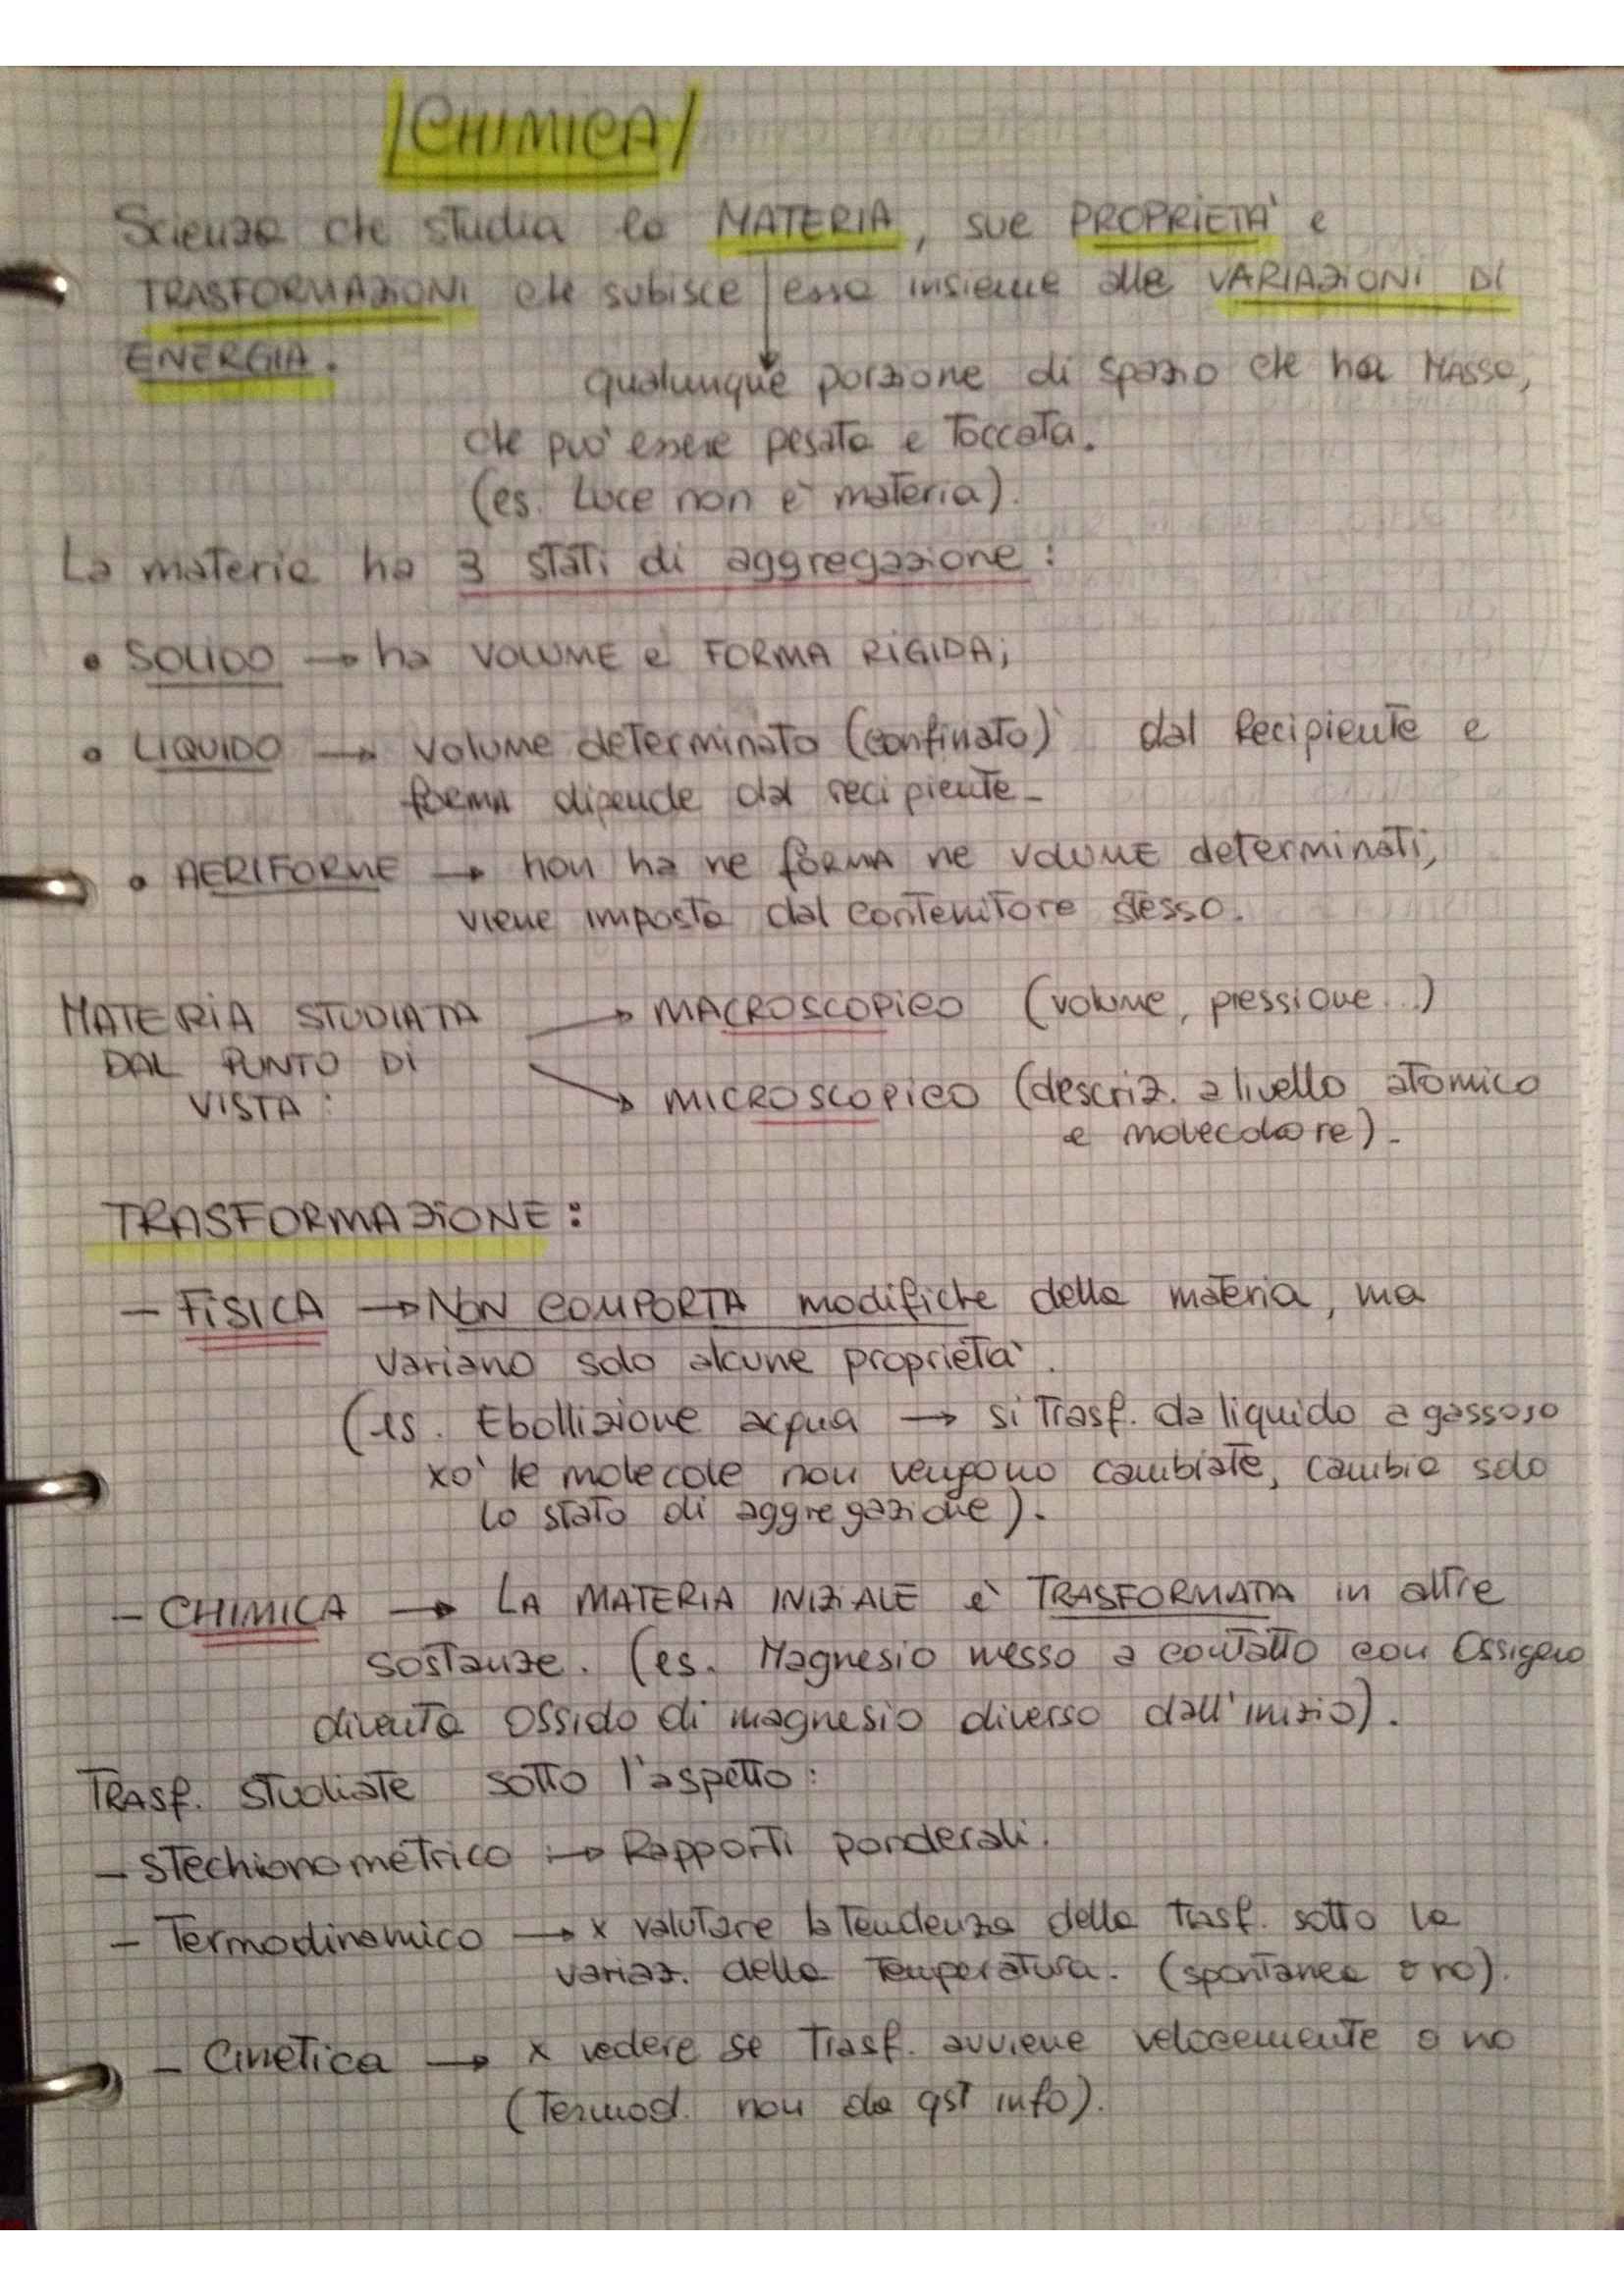 CHIMICA
Scienza che studia la MATERIA, sue PROPRIETÀ e
TRASFORMAZIONI che subisce essa insieme alle VARIAZIONI DI
ENERGIA.
qualunque porzione di spazio che ha MASSA,
che può essere pesata e toccata.
(es. Luce non è materia).
La materia ha 3 stati di aggregazione:
• SOLIDO → ha VOLUME e FORMA RIGIDA;
• LIQUIDO → volume determinato (confinato) dal Recipiente e
forma dipende dal recipiente-
• AERIFORME → non ha ne forma ne volume determinati,
viene imposta dal contenitore stesso.
MATERIA STUDIATA → MACROSCOPICO (volume, pressione...)
DAL PUNTO DI
VISTA: → MICROSCOPICO (descriz. a livello atomico
e molecolare)-
TRASFORMAZIONE:
- FISICA → NON COMPORTA modifiche della materia, ma
variano solo alcune proprietà.
(es. Ebollizione acqua → si trasf. da liquido a gassoso
xò le molecole non vengono cambiate, cambia solo
lo stato di aggregazione).
- CHIMICA → LA MATERIA INIZIALE è TRASFORMATA in altre
sostanze. (es. Magnesio messo a contatto con Ossigeno
diventa Ossido di magnesio diverso dall'inizio).
Trasf. studiate sotto l'aspetto:
- stechionometrico → Rapporti ponderali.
- Termodinamico → x valutare la tendenza della trasf. sotto la
variaz. della temperatura. (spontanea o no).
- Cinetica → x vedere se trasf. avviene velocemente o no
(Termod. non da qst info).